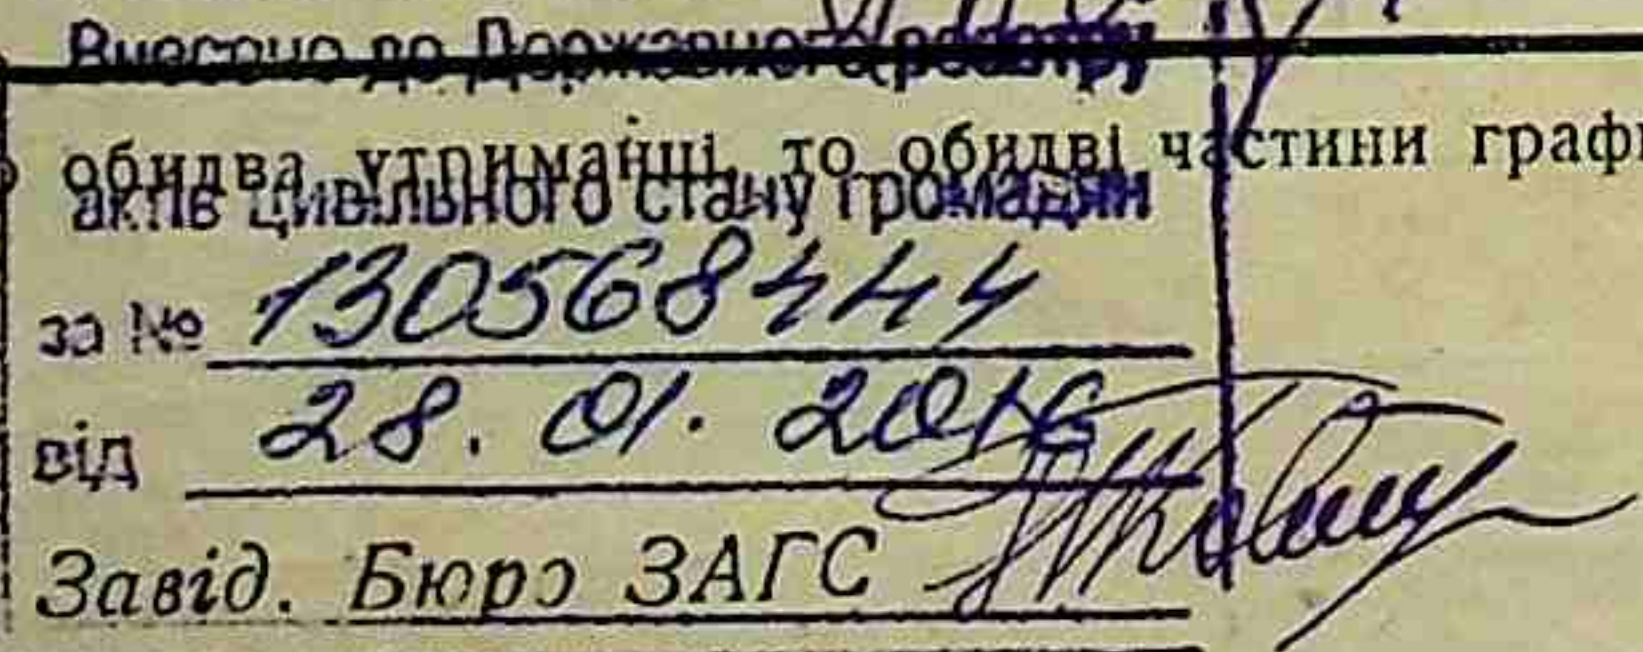 Внесено до Державного реєстру
обидва утриманці, то обидві частини граф
актів цивільного стану громадян
за № 130568444
від 28. 01. 2016
Завід. Бюро ЗАГС